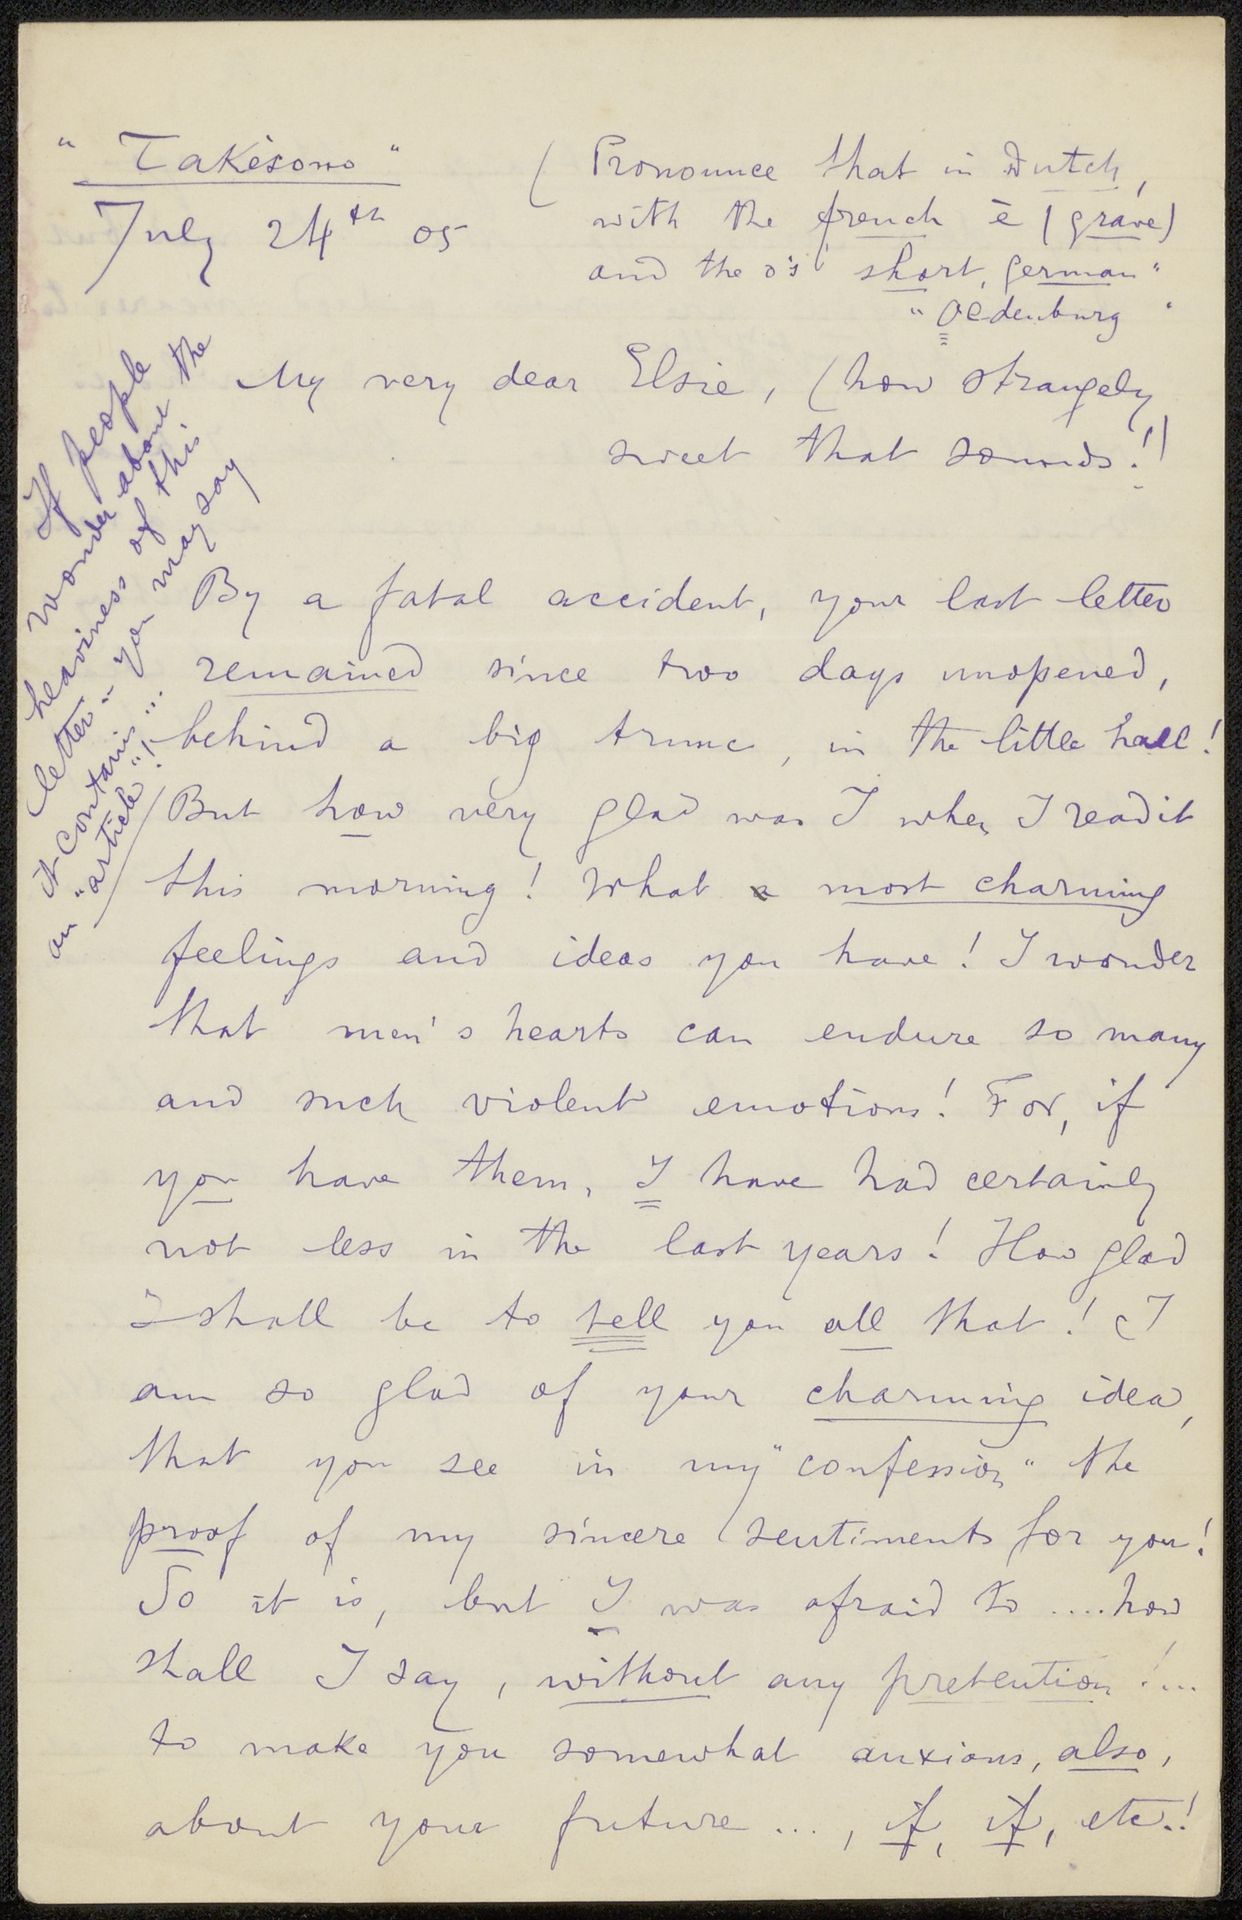 "Takèsono"
July 24th 05
( Pronounce that in Dutch,
with the french è (grave)
and the o's short, german"
"Oldenburg"
My very dear Elsie, (how strangely
sweet that sounds!)
By a fatal accident, your last letter
remained since two days unopened,
behind a big trunc, in the little hall!
But how very glad was I when I read it
this morning! What a most charming
feelings and ideas you have! I wonder
that men's hearts can endure so many
and such violent emotions! For, if
you have them, I have had certainly
not less in the last years! How glad
I shall be to tell you all that! I
am so glad of your charming idea,
that you see in my "confession" the
proof of my sincere sentiments for you!
So it is, but I was afraid to .... how
shall I say, without any pretention!...
to make you somewhat anxious, also,
about your future ..., if, if, etc.!
If people
wonder about the
heaviness of this
letter - you may say
it contains ...
an "article"!